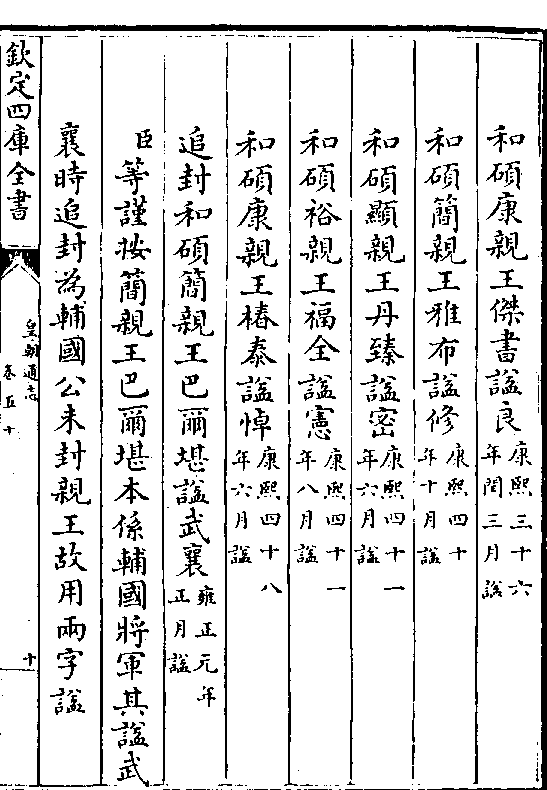 和碩康親王傑書諡良康熙三十六年閏三月諡
和碩簡親王雅布諡修康熙四十年十月諡
和碩顯親王丹臻諡密康熙四十一年六月諡
和碩裕親王福全諡憲康熙四十一年八月諡
和碩康親王椿泰諡悼康熙四十八年六月諡
追封和碩簡親王巴爾堪諡武襄雍正元年正月諡
臣等謹按簡親王巴爾堪本係輔國將軍其諡武
襄時追封為輔國公未封親王故用兩字諡
欽定四庫全書
皇朝通志
卷五十
十